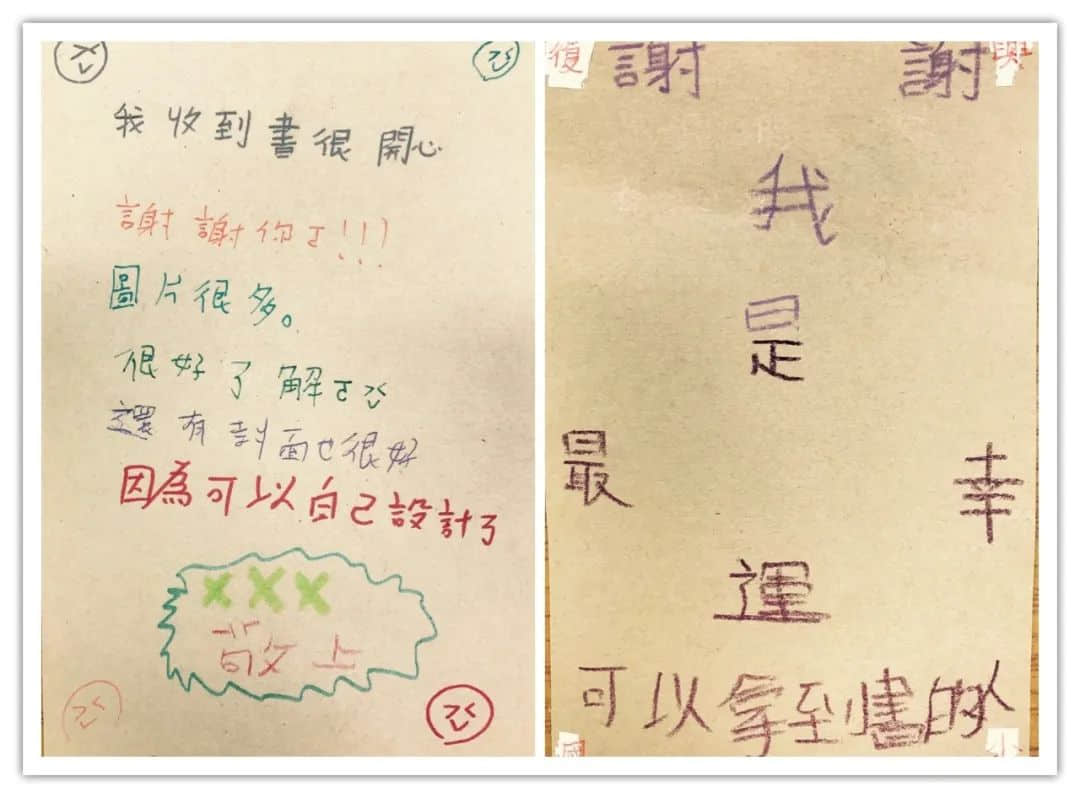 我收到書很開心
謝謝你ㄛ!!!
圖片很多。
很好了解ㄛ
還有封面也很好
因為可以自己設計了
XXX
敬上
復 謝 謝 興
我
是
最 幸
運
可以拿到書的人
國 小